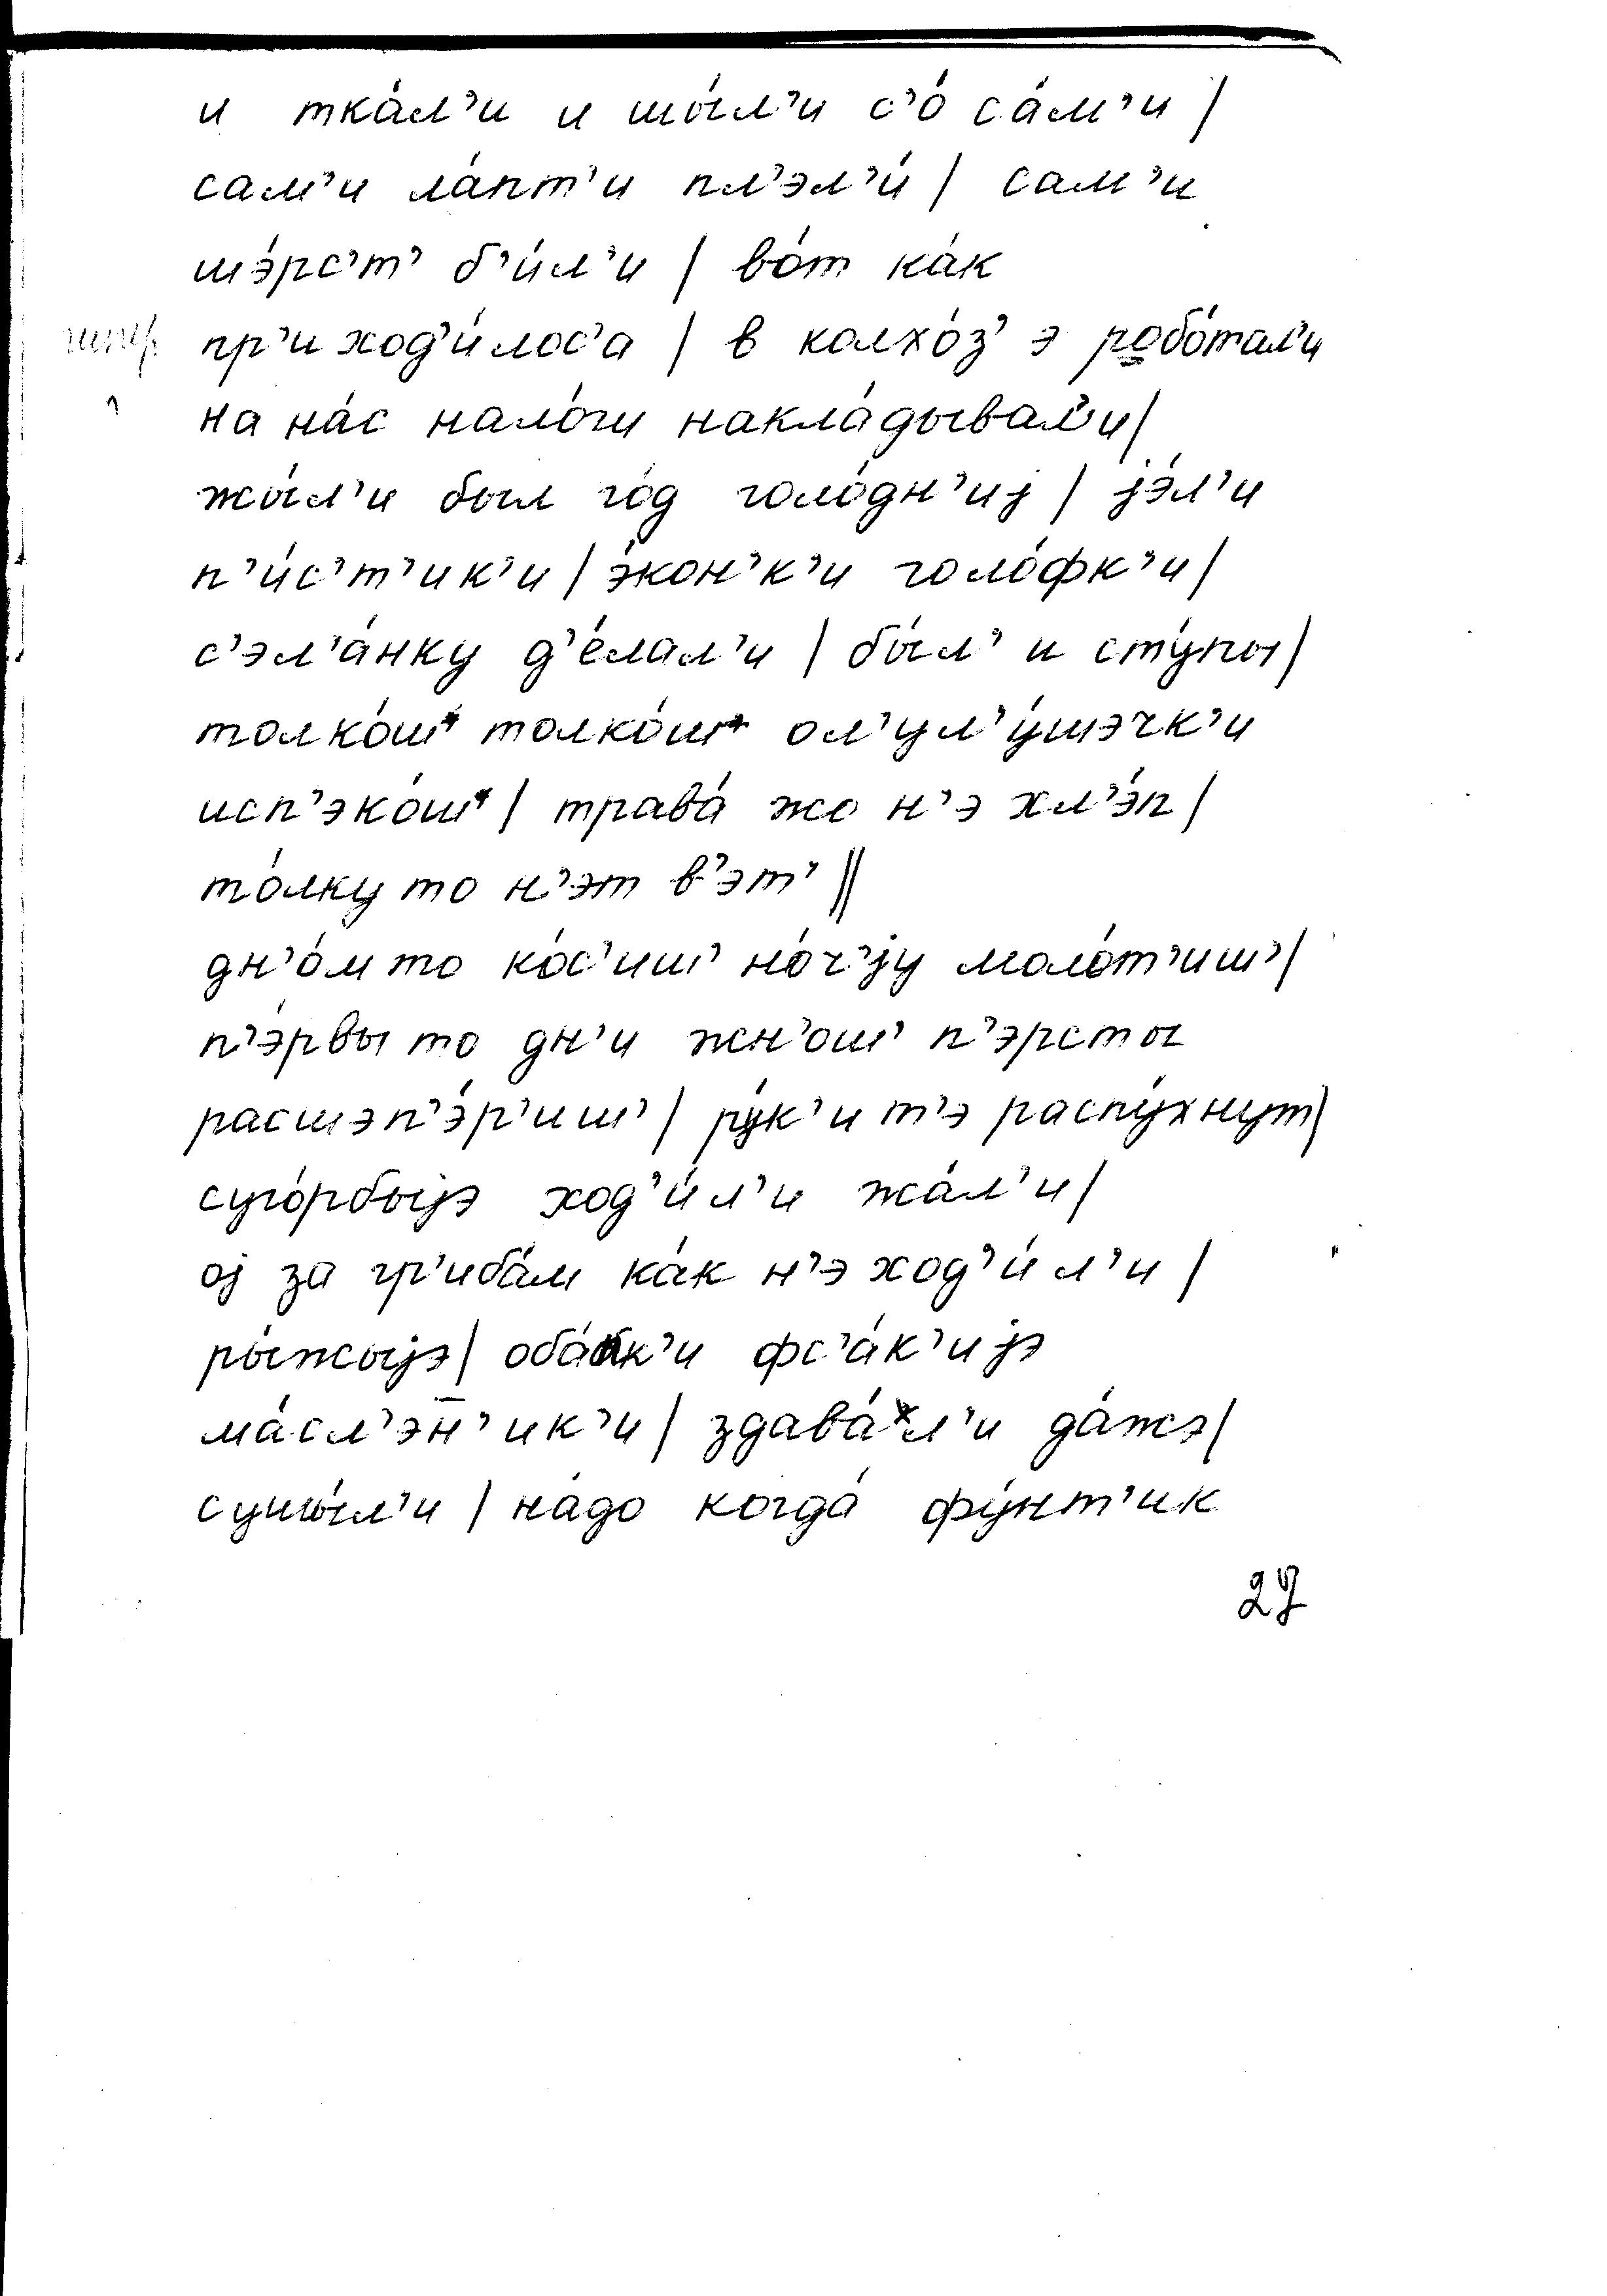 и тка́л’и и шы́л’и с’о́ са́м’и |
сам’и ла́пт’и пл’эл’и́ | сам’и
шэ́рс’т’ б’и́л’и | во́т ка́к
пр’иход’и́лос’а | в колхо́з’э робо́тал’и
на на́с нало́ги накла́дывал’и |
жы́л’и был го́д голо́дн’иj | jэ́л’и
п’и́с’т’ик’и | э́кон’к’и голо́фк’и |
с’эл’а́нку д’е́лал’и | бы́л’и сту́пы |
толко́ш’ толко́ш’ ол’ул’у́шэчк’и
исп’эко́ш’ | трава́ жо н’э хл’э́п |
то́лку то н’эт в’эт’ ||
дн’о́м то ко́с’иш’ но́ч’jу моло́т’иш’ |
п’э́рвы то дн’и жн’ош’ п’эрсты
расшэп’э́р’иш’ | ру́к’и т’э распу́хнут |
суго́рбыjэ ход’и́л’и жа́л’и |
оj за гр’иба́м ка́к н’э ход’и́л’и |
ры́жыjэ | оба́пк’и фс’а́к’иjэ
ма́сл’эн̄’ик’и | здава́л’и да́жэ |
сушы́л’и | на́до когда́ фу́нт’ик
27